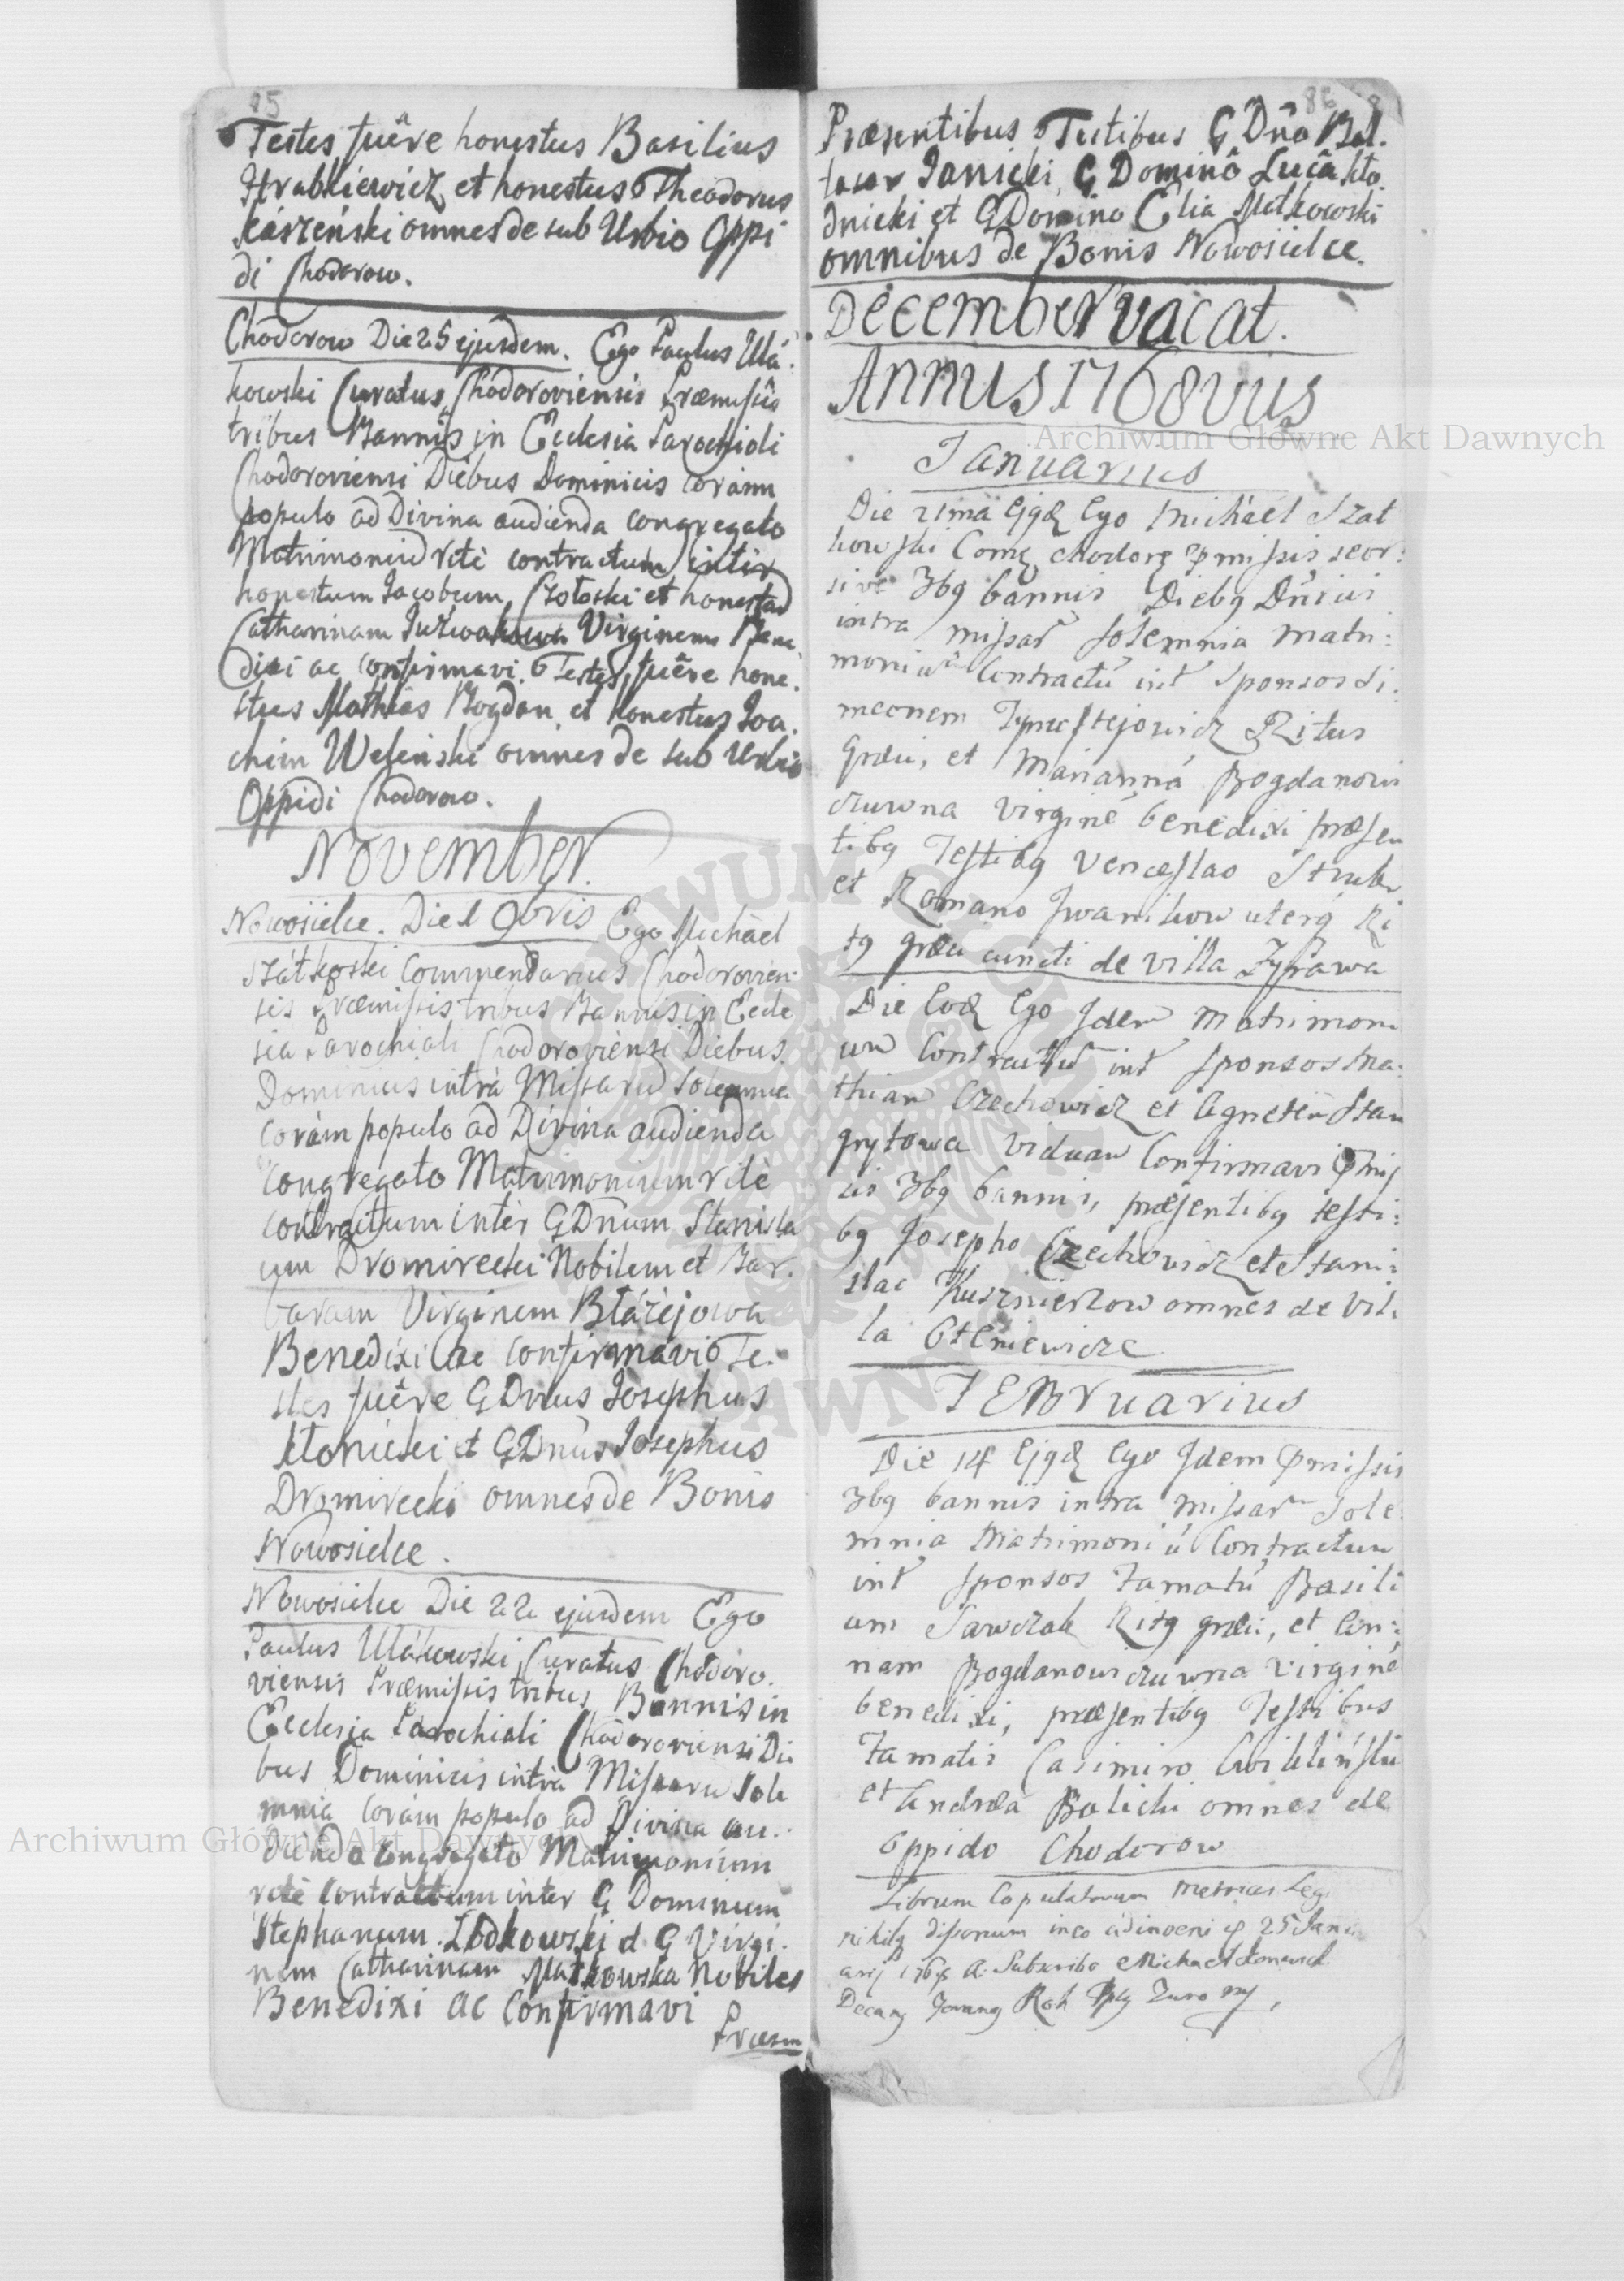 85
Testes fuêre honestus Basilius
Hrabkiewicz et honestus Theodorus
omnes de sub Urbio Oppi
di Chodorow.
Chodorow Die 25 ejusdem. Ego Paulus Ula
kowski Curatus Chodoroviensis Præmissis
tribus Bannis in Ecclesia Parochiali
Chodoroviensi Diebus Dominicis coràm
populo ad Divina audienda congregato
Matrimoniū ritè contractum inter
honestum Jacobum et honestā
Catharinam Virginem Bene
dixi ac confirmavi. Testes fuêre hone
stus Mathias Bogdan et honestus Joa
chim Weleński omnes de sub Urbio
Oppidi Chodorow.
November.
Nowosielce. Die 1 9bris Ego Michäel
Szátkoski Commendarius Chodorovien
sis Præmissis tribus Bannis in Eccle
sia Parochiali Chodoroviènsi Diebus
Dominicis intrà Missarū Solemnia
coràm populo ad Divina audienda
congregato Matrimonium ritè
contractum intèr GDnum Stanisla
um Dromirecki Nobilem et Bar
baram Virginem Błáżejowa
Benedixi ac confirmavi Te
stes fuêre GDnus Josephus
et GDnus Josephus
Dromirecki omnes de Bonis
Nowosielce.
Nowosielce Die 22 ejusdem Ego
Paulus Ulákowski Curatus Chodoro
viensis Præmissis tribus Bannis in
Ecclesia Parochiali Chodoroviensi Die
bus Dominicis intrà Missarū Sole
mnia coràm populo ad Divina au
dienda congregato Matrimonium
ritè contractum inter G Dominum
Stephanum Zodkowski et G Virgi
nem Catharinam Matkowska Nobiles
Benedixi ac confirmavi
Præsen
86
Præsentibus Testibus G Dño Bal
tasar Janicki, G Dominô Lucâ
et GDomino Elia Matkowski
omnibus de Bonis Nowosielce.
December vacat.
Annus 1768vus
Januarius
Die 21ma Ejqd Ego Michäel Szat
kowski Comę Chodorę pmissis seor:
sive 3bq bannis Diebq Dnicis
intra missar Solemnia matri:
moniū Contractū int Sponsos Si:
meonem Ritus
Græci, et Mariannā Bogdanowi
czuwna virginē benedixi præsen
tibq Testibq Venceslao
et Romano Iwanikow uterq Ri
tq græci cuncti de villa Zyrawa
Die Eod Ego Idem Matrimoni
um Contractū int Sponsos Ma:
thiam Czechowicz et Agnetem
viduam Confirmavi pmis
sis 3bq bannis, præsentibq testi:
bq Josepho Czechowicz et Stani:
slao Kusznierzow omnes de vil:
la Otteniewicze
Februarius
Die 14 Ejqd Ego Idem pmissis
3bq bannis intra missar Sole
mnia Matrimoniū Contractum
int Sponsos Famatū Basili
um Sawczak Ritq græci, et
nam Bogdanowiczuwna virginē
benedixi, præsentibq Testibus
Famatis Casimiro
et Andræa Balicki omnes de
Oppido Chodorow
Librum Copulatorum
25 Janu
arij A. Subscribo Michael